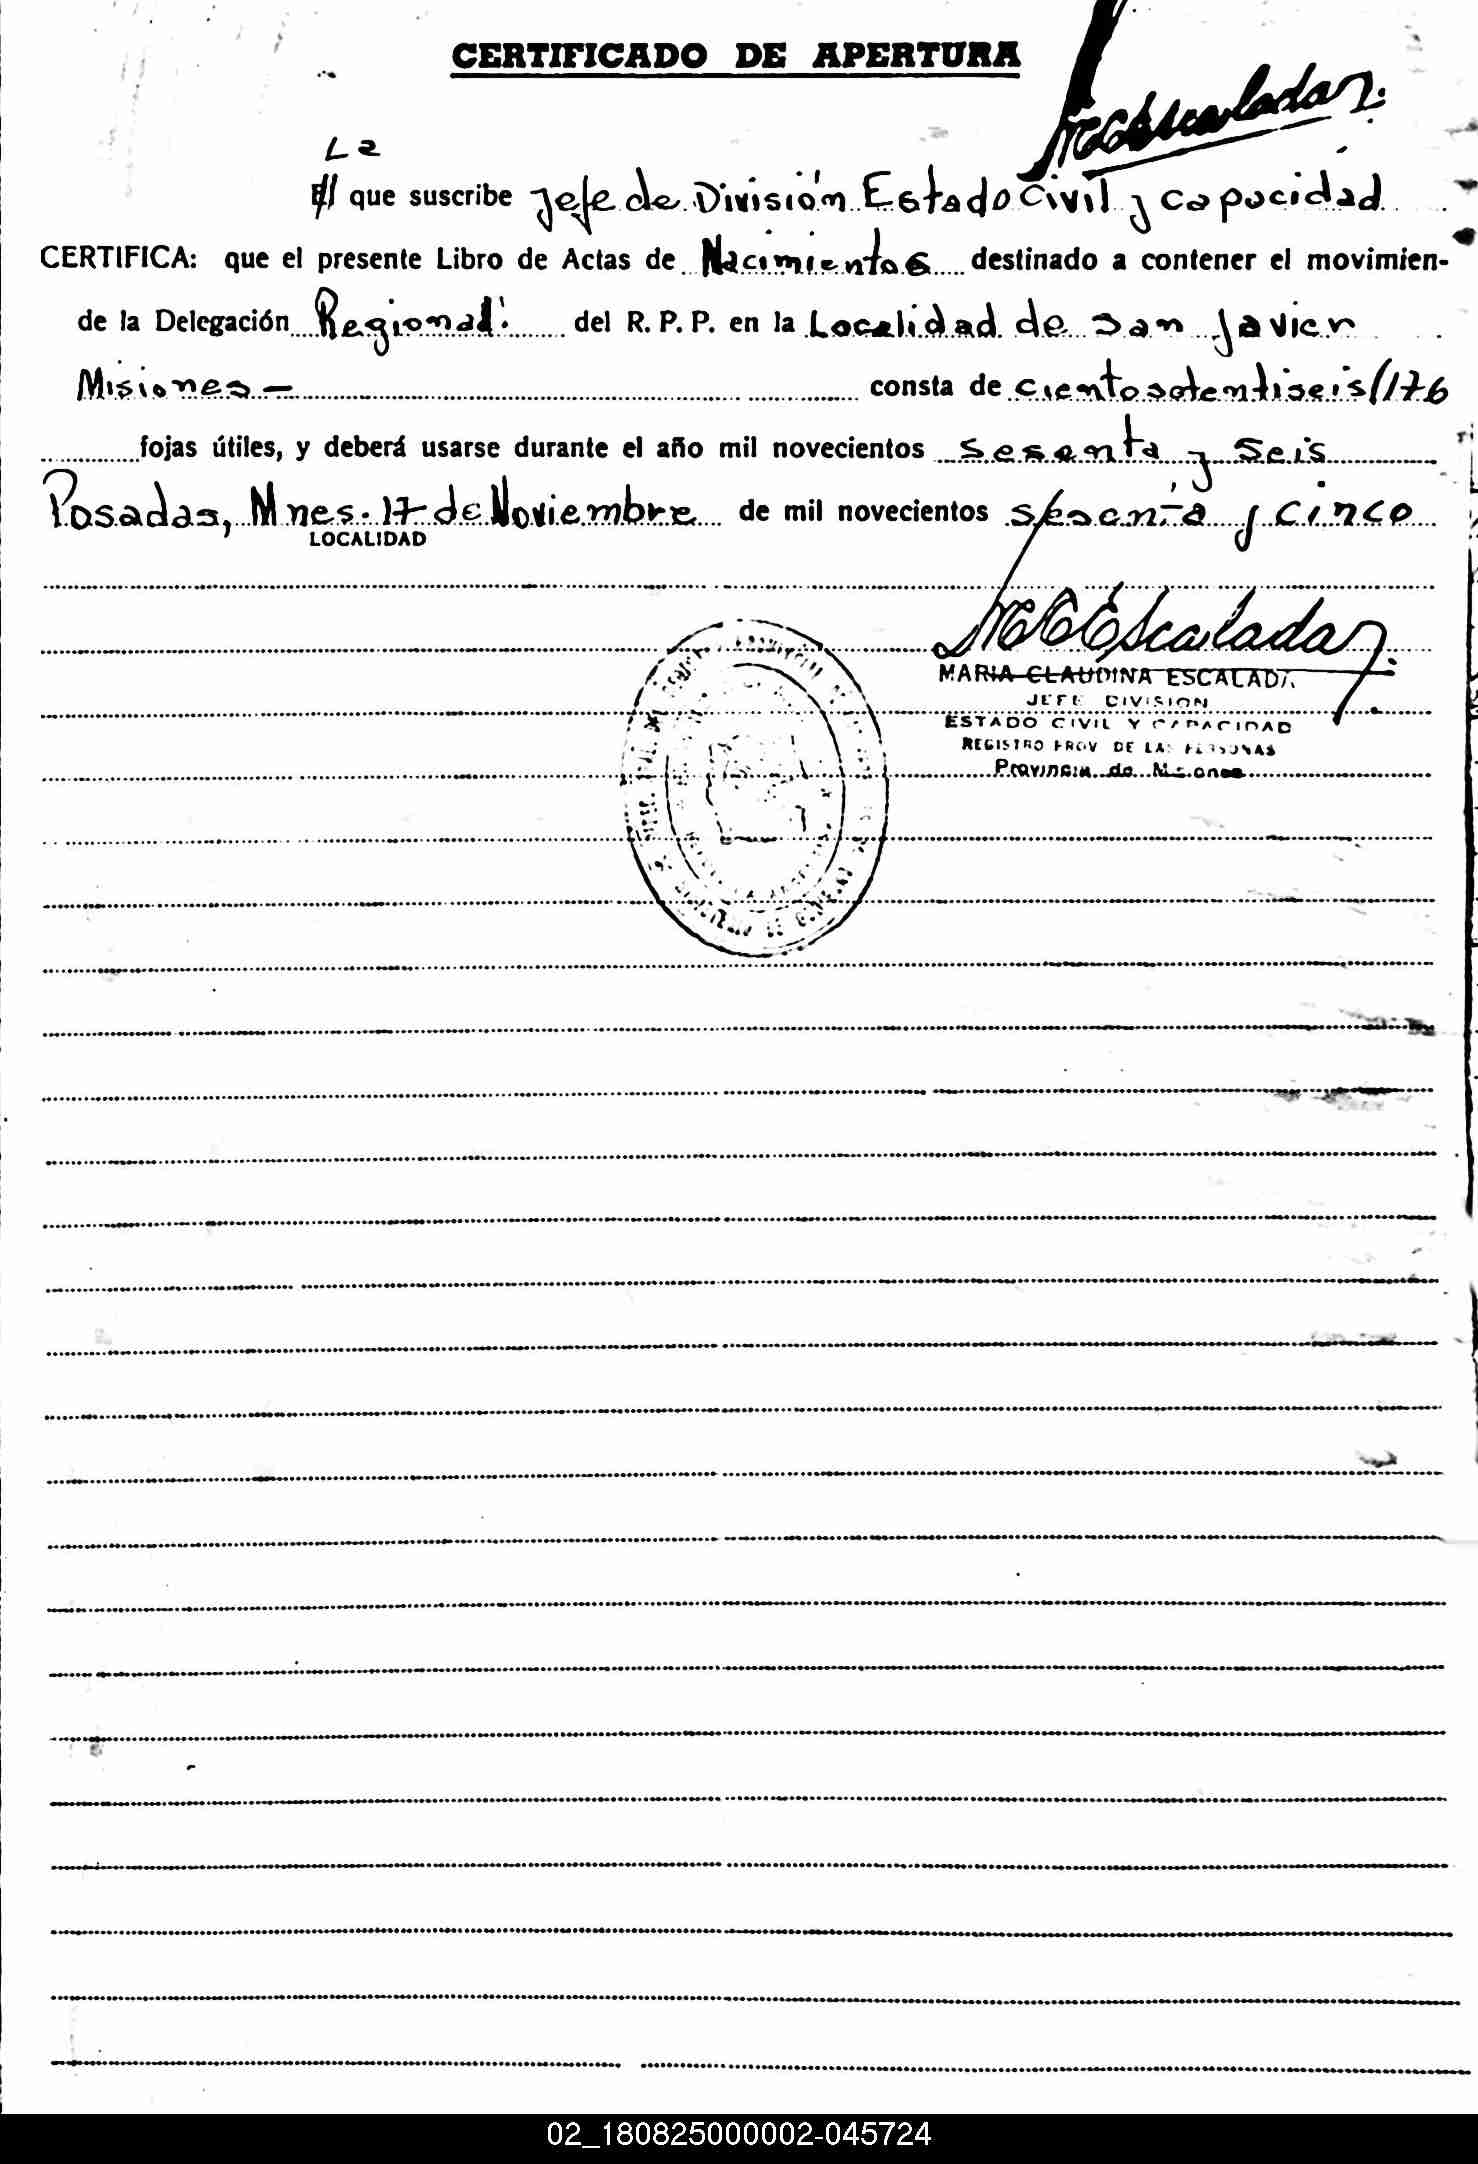 CERTIFICADO DE APERTURA
MCEscalada
La
El que suscribe Jefe de División Estado Civil y Capacidad
CERTIFICA: que el presente Libro de Actas de Nacimientos destinado a contener el movimien-
de la Delegación Regional del R. P. P. en la Localidad de San Javier
Misiones - consta de cientosetentiseis/176
fojas útiles, y deberá usarse durante el año mil novecientos sesenta y seis
Posadas, Mnes. 17 de Noviembre de mil novecientos sesenta y cinco
LOCALIDAD
MCEscalada
MARIA CLAUDINA ESCALADA
JEFE DIVISION
ESTADO CIVIL Y CAPACIDAD
REGISTRO PROV DE LAS PERSONAS
Provincia de Misiones
02_180825000002-045724